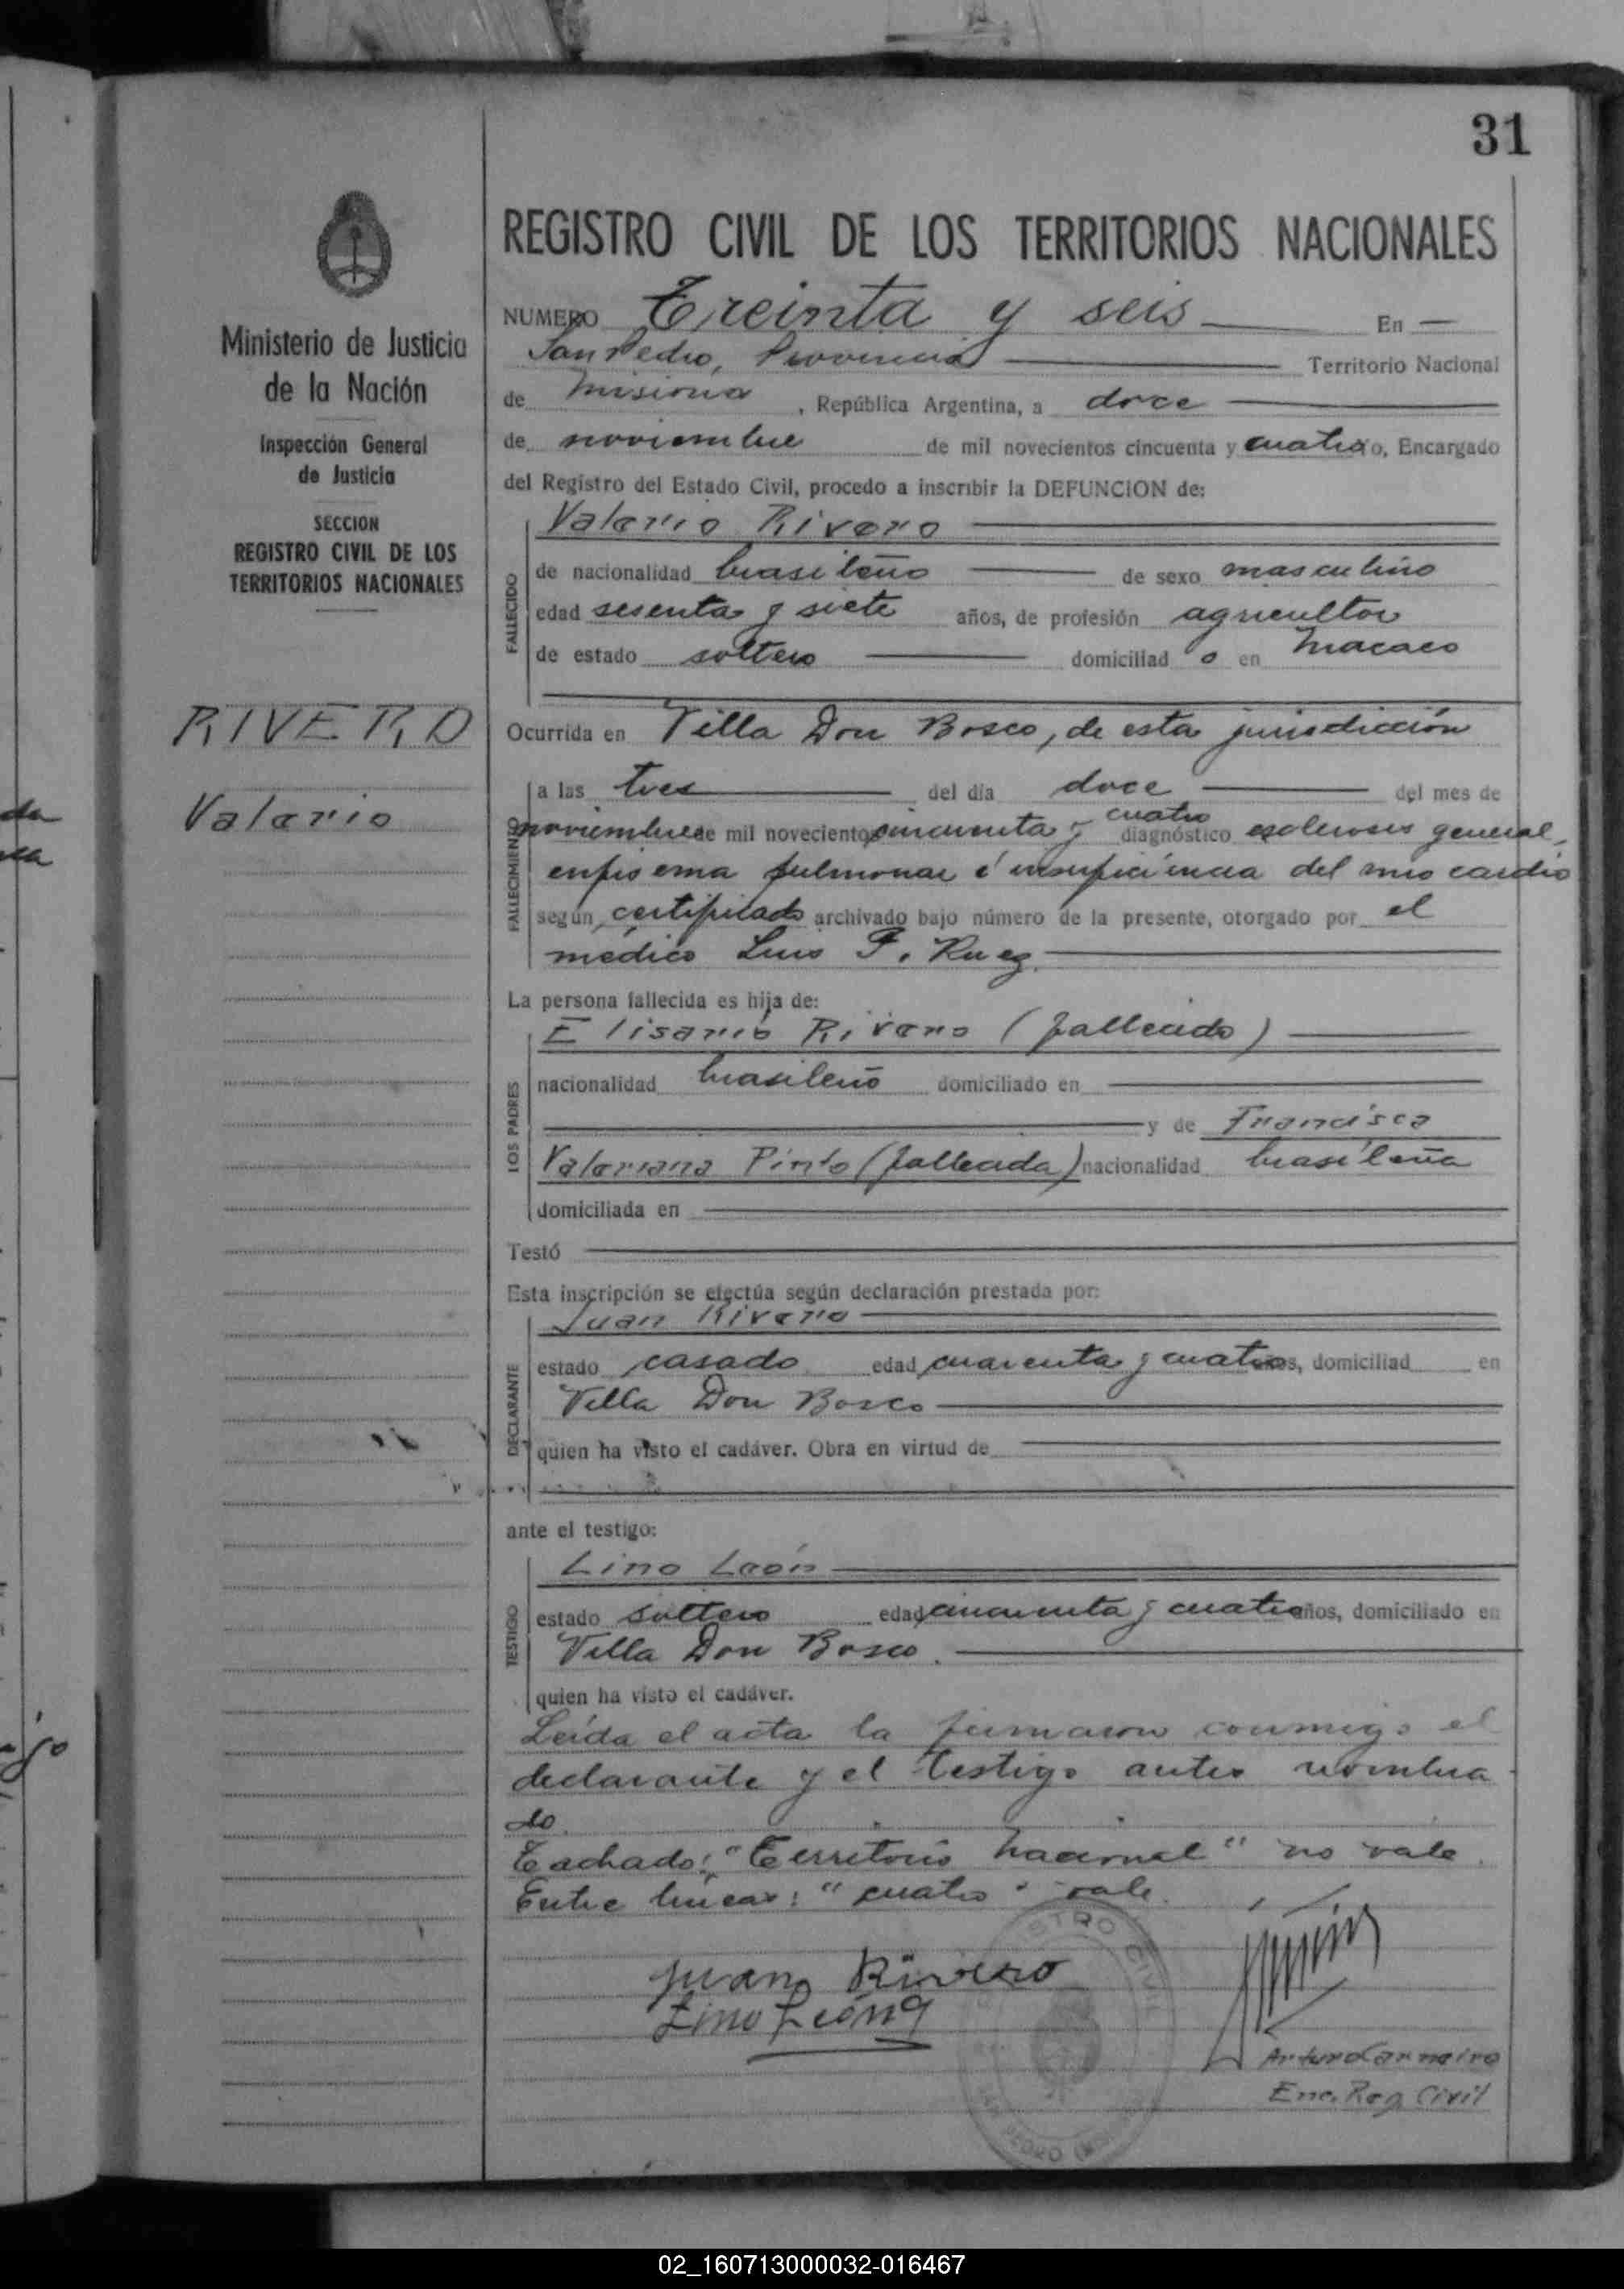 31
REGISTRO CIVIL DE LOS TERRITORIOS NACIONALES
Ministerio de Justicia
de la Nación
Inspección General
de Justicia
SECCION
REGISTRO CIVIL DE LOS
TERRITORIOS NACIONALES
RIVERO
Valerio
NUMERO Treinta y seis En
San Pedro, Provincia Territorio Nacional
de Misiones, República Argentina, a doce
de noviembre de mil novecientos cincuenta y cuatro yo, Encargado
del Registro del Estado Civil, procedo a inscribir la DEFUNCION de:
Valerio Rivero
FALLECIDO
de nacionalidad brasileño de sexo masculino
edad sesenta y siete años, de profesión agricultor
de estado soltero domiciliad o en Macaco
Ocurrida en Villa Don Bosco, de esta jurisdicción
FALLECIMIENTO
a las tres del día doce del mes de
cuatro
noviembre de mil novecientos cincuenta y diagnóstico esclerosis general,
enfisema pulmonar é insuficiencia del miocardio
según certificado archivado bajo número de la presente, otorgado por el
médico Luis F.
La persona fallecida es hija de:
LOS PADRES
Elisario Rivero (fallecido)
nacionalidad brasileño domiciliado en
y de Francisca
Valeriana Pinto (fallecida) nacionalidad brasileña
domiciliada en
Testó
Esta inscripción se efectúa según declaración prestada por:
DECLARANTE
Juan Rivero
estado casado edad cuarenta y cuatro años, domiciliad en
Villa Don Bosco
quien ha visto el cadáver. Obra en virtud de
ante el testigo:
TESTIGO
Lino León
estado soltero edad cincuenta y cuatro años, domiciliado en
Villa Don Bosco.
quien ha visto el cadáver.
Leída el acta la firmaron conmigo el
declarante y el testigo antes nombra
do.
Tachado: "Territorio Nacional" no vale.
Entre líneas: "cuatro" vale.
Juan Rivero
Lino León
Arturo Carneiro
Enc. Reg. Civil
02_160713000032-016467